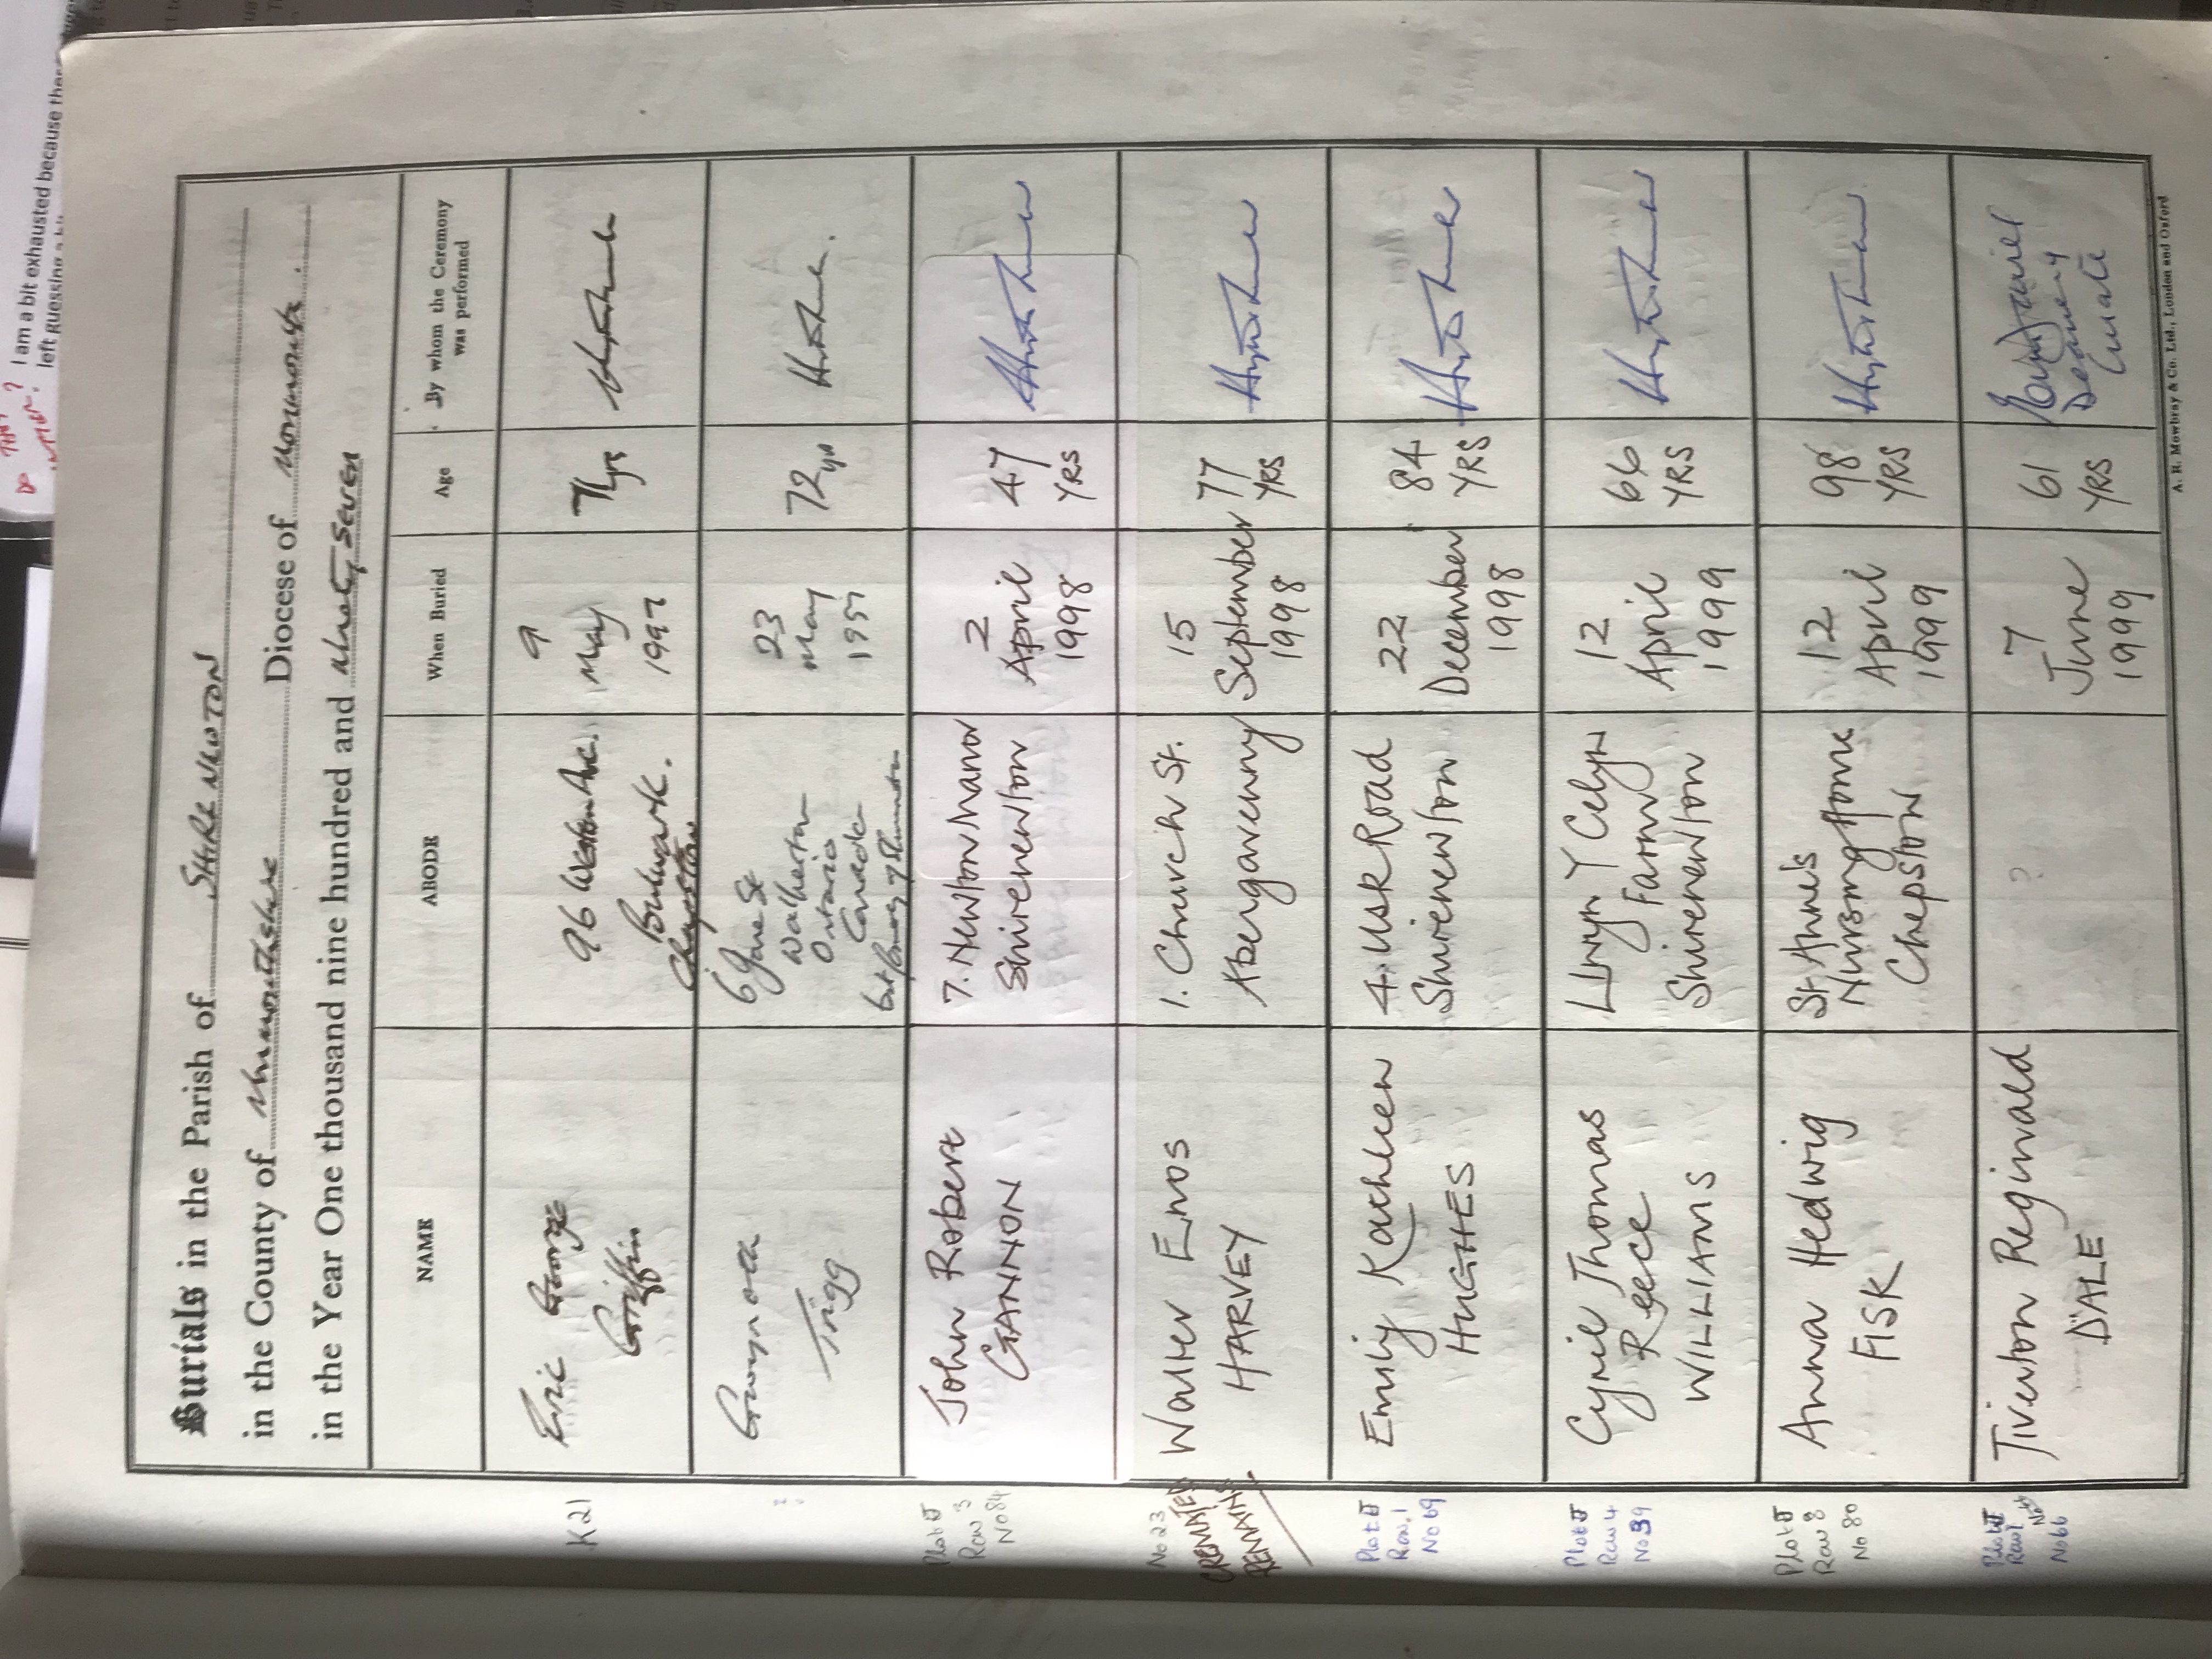 I am a bit exhausted because
left guessing
Burials in the Parish of SHIRE NEWTON
in the County of Monmouthshire Diocese of Monmouth.
in the Year One thousand nine hundred and Ninety Seven
NAME ABODE When Buried Age By whom the Ceremony was performed
K21
Eric George
Griffin
96 Western Ave.
Bulwark.
Chepstow
9
May
1997
71 yrs
Trigg
6 Jane St
Walkerton
Ontario
Canada
23
May
1997
72 yrs
Plot J
Row 3
No 84
John Robert
GANNON
7. Newton Manor
Shirenewton
2
April
1998
47
YRS
No 23
CREMATED
REMAINS
Walter Enos
HARVEY
1. Church St.
Abergavenny
15
September
1998
77
YRS
Plot J
Row. 1
No 69
Emily Kathleen
HUGHES
4. Usk Road
Shirenewton
22
December
1998
84
YRS
Plot J
Row 4
No 39
Cyril Thomas
Reece
WILLIAMS
Llwyn Y Celyn
Farm
Shirenewton
12
April
1999
66
YRS
Plot J
Row 8
No 80
Anna Hedwig
FISK
St Anne's
Nursing Home
Chepstow
12
April
1999
98
YRS
Plot J
Row 1
No 66
Tiverton Reginald
DALE
?
7
June
1999
61
YRS
Deanery
Curate
A. R. Mowbray & Co. Ltd., London and Oxford